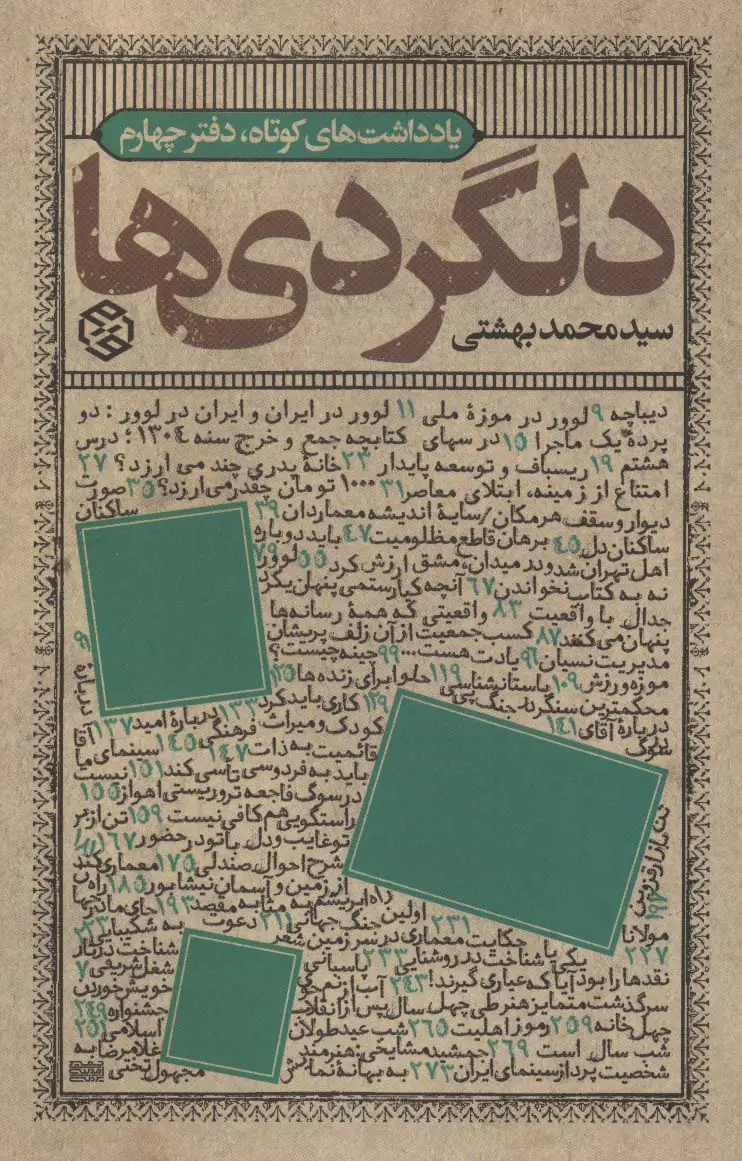 یادداشت‌های کوتاه، دفتر چهارم
دلگردی‌ها
سید محمد بهشتی
دیباچه ۹ لوور در موزهٔ ملی ۱۱ لوور در ایران و ایران در لوور : دو
پردهٔ یک ماجرا ۱۵ درسهای کتابچه جمع و خرج سنه ۱۳۰۴؛ درس
هشتم ۱۹ ریسباف و توسعه پایدار ۲۳ خانهٔ پدری چند می ارزد؟ ۲۷
امتناع از زمینه، ابتلای معاصر ۳۱ ۱۰۰۰ تومان چقدر می‌ارزد؟ ۳۵ صورت
دیوار و سقف هر مکان / سایهٔ اندیشه معماردان ۳۹ ساکنان
ساکنان دل ۴۵ برهان قاطع مظلومیت ۴۷ باید دوباره
اهل تهران شد و در میدان، مشق ارزش کرد ۵۵ لوور ۷۹
نه به کتاب نخواندن ۶۷ آنچه کیارستمی پنهان یکرد
جدال با واقعیت ۸۳ واقعیتی که همهٔ رسانه‌ها
پنهان می‌کنند ۸۷ کسب جمعیت از آن زلف پریشان ۹۱
مدیریت نسیان ۹۶ یادت هست... ۹۹ چینه چیست؟
موزه ورزش ۱۰۹ باستانشناسی ۱۱۹ حلوا برای زنده ها ۱۲۵ دربارهٔ
محکمترین سنگر در جنگ پی ۱۲۹ کاری باید کرد ۱۳۳ دربارهٔ امید ۱۳۷ آقا
دربارهٔ آقای ۱۴۱ کودک و میراث فرهنگی ۱۴۵ سینمای ما
سوگ قائمیت به ذات ۱۴۷
باید به فردوسی تأسی کند ۱۵۱ نیست
در سوگ فاجعه تروریستی اهواز ۱۵۵
راستگویی هم کافی نیست ۱۵۹ تن از بر
تو غایب و دل با تو در حضور ۱۶۷
شرح احوال صندلی ۱۷۵ معماری کند
از زمین و آسمان نیشابور ۱۸۵ راه
راه ابریشم به مثابه مقصد ۱۹۳ جای مادر
اولین جنگ جهانی ۲۱۱ دعوت به شکیبایی ۲۲۳
مولانا ۲۳۱ حکایت معماری در سرزمین شعر
۲۲۷ یکی یا شناخت در روشنایی ۲۳۳ پاسبانی شناخت در بار
نقدها را بود آیا که عیاری گیرند! ۲۴۳ آب از نم جو شغل شریفی
سرگذشت متمایز هنر طی چهل سال پس از انقلاب خویش خوردن
چهل خانه ۲۵۹ رموز اهلیت ۲۶۵ شب عید طولانی جشنواره ۲۴۹
شب سال است ۲۶۹ جمشید مشایخی: هنرمند اسلامی ۲۵۱
شخصیت پرداز سینمای ایران ۲۷۳ به بهانهٔ نمایش غلامرضا به
مجهول تختی